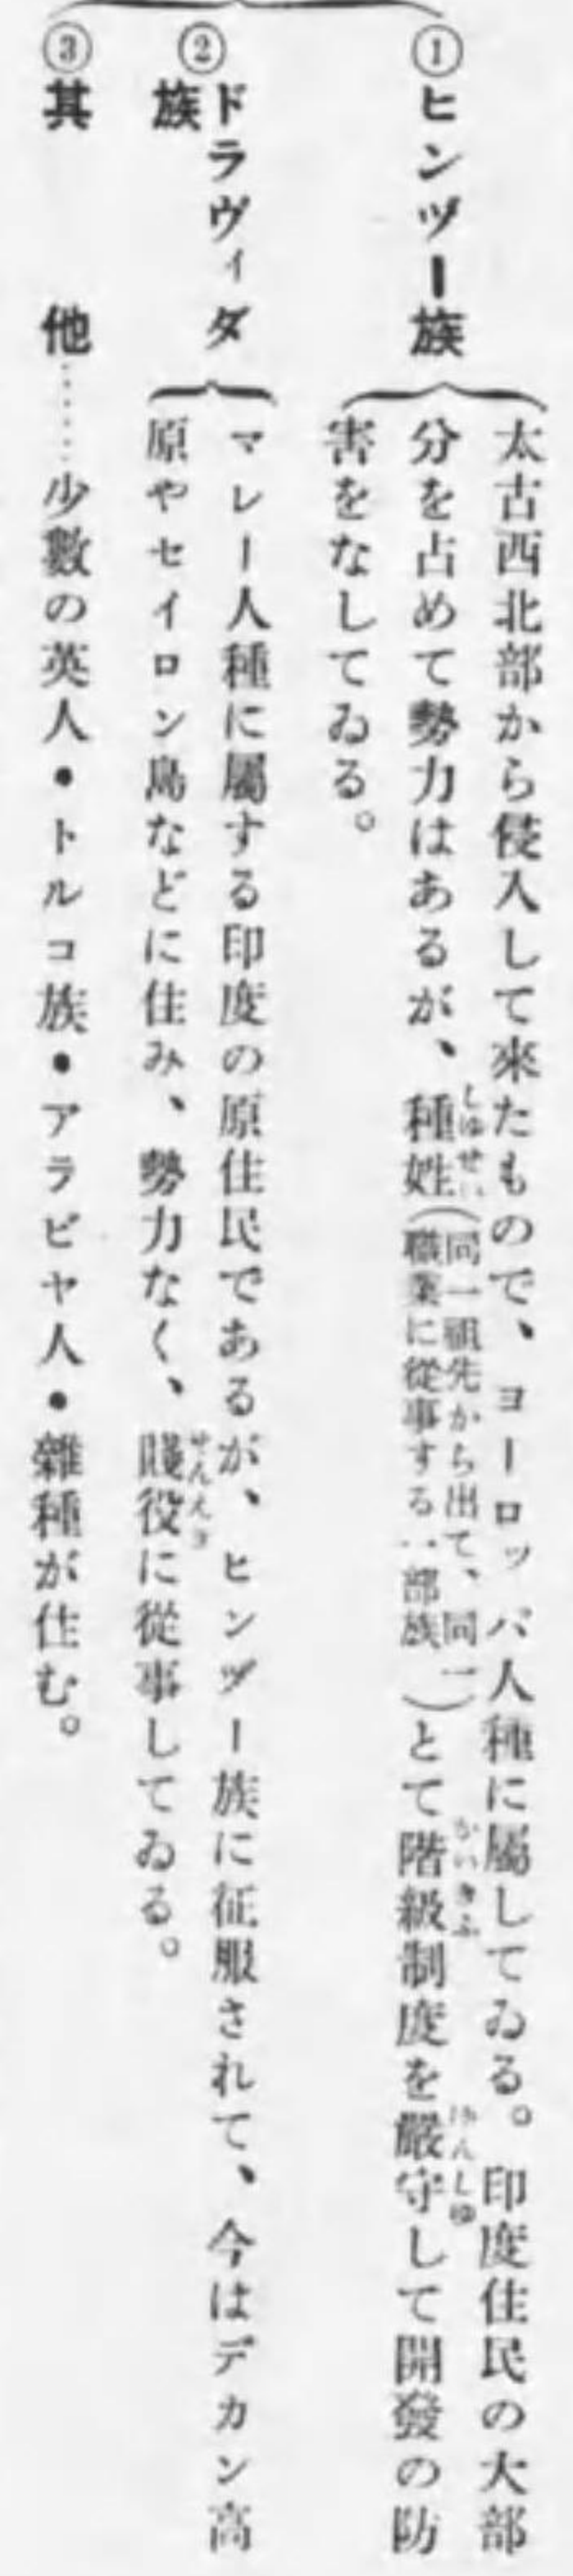 ①ヒンヅー族
太古西北部から侵入して來たもので、ヨーロッパ人種に屬してゐる。印度住民の大部
分を占めて勢力はあるが、種姓(同一祖先から出て、同一職業に從事する一部族)とて階級制度を嚴守して開發の防
しゆせい
かいきふ
げんしゆ
害をなしてゐる。
②ドラヴィダ
族
マレー人種に屬する印度の原住民であるが、ヒンヅー族に征服されて、今はデカン高
原やセイロン島などに住み、勢力なく、賤役に從事してゐる。
せんえき
③其他……少數の英人・トルコ族・アラビヤ人・雜種が住む。